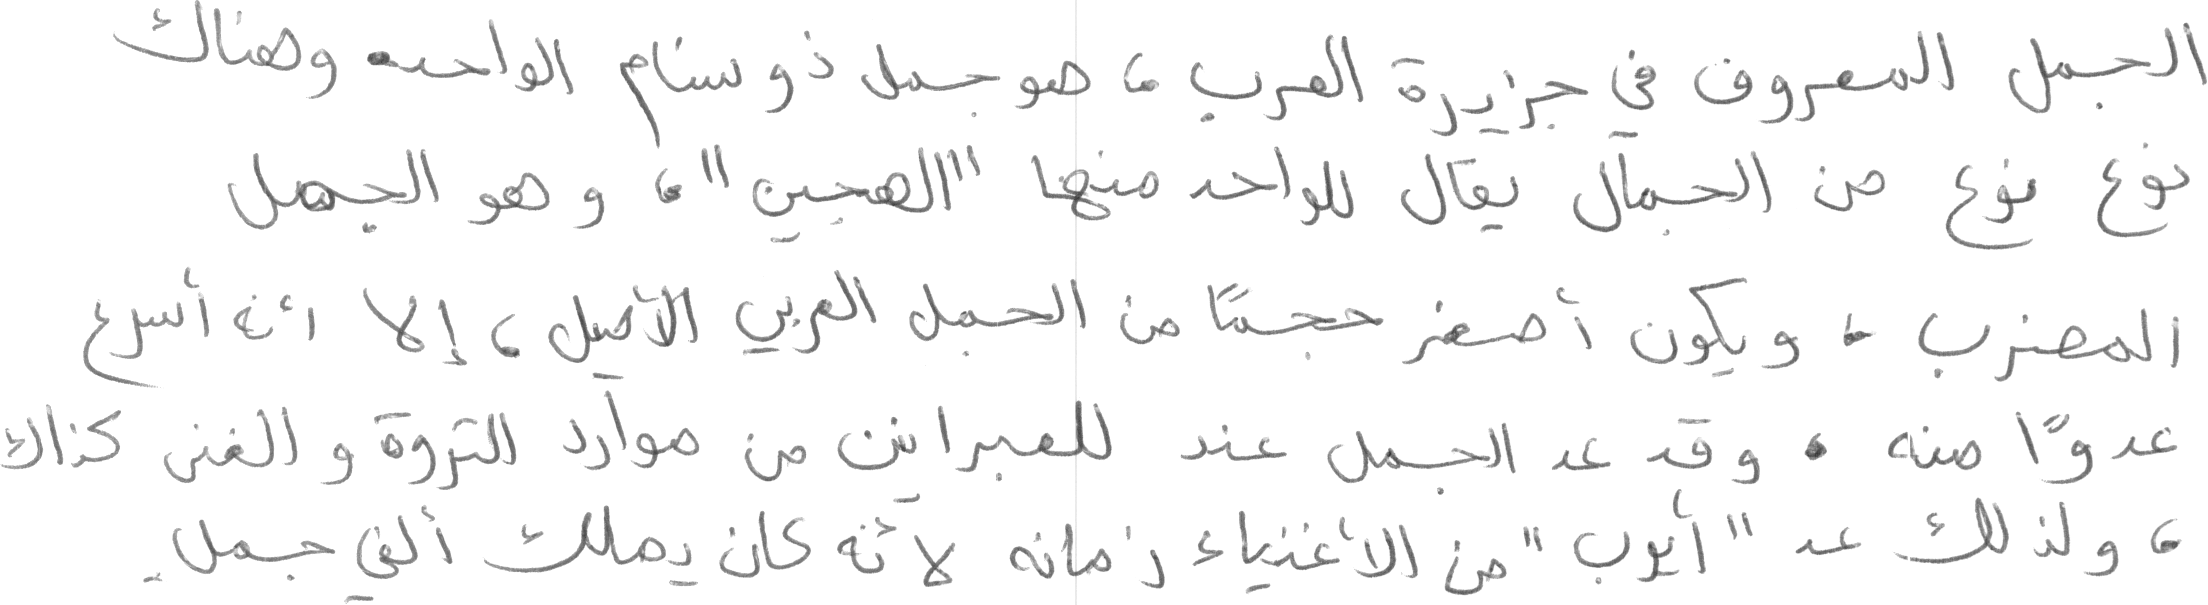 الجمل المعروف في جزيرة العرب، هو جمل ذو سنام الواحد وهناك
نوع نوع من الجمال يقال للواحد منها "الهجين"، و هو الجمل
المضرب، ويكون أصغر حجمًا من الجمل العربي الأصيل، إلا أنه أسرع
عدوًا منه. وقد عد الجمل عند للعبرانيين من موارد الثروة و الغنى كذاك
، ولذلك عد "أيوب" من الأغنياء زمانه لأنه كان يملك ألفي جمل.